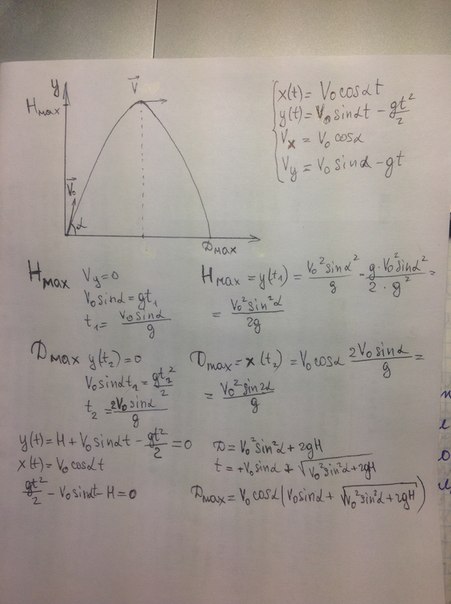 y
Hmax
V⃗
V⃗₀
α
Dmax
x(t) = V₀cosαt
y(t) = V₀sinαt - gt²/2
Vx = V₀cosα
Vy = V₀sinα - gt
Hmax Vy = 0
V₀sinα = gt₁
t₁ = V₀sinα/g
Hmax = y(t₁) = V₀²sinα²/g - g·V₀²sin²α/2·g² =
= V₀²sin²α/2g
Dmax y(t₂) = 0
V₀sinαt₂ = gt₂²/2
t₂ = 2V₀sinα/g
Dmax = x(t₂) = V₀cosα 2V₀sinα/g =
= V₀²sin2α/g
y(t) = H + V₀sinαt - gt²/2 = 0
x(t) = V₀cosαt
gt²/2 - V₀sinαt - H = 0
D = V₀²sin²α + 2gH
t = +V₀sinα + √(V₀²sin²α + 2gH)
Dmax = V₀cosα(V₀sinα + √(V₀²sin²α + 2gH))